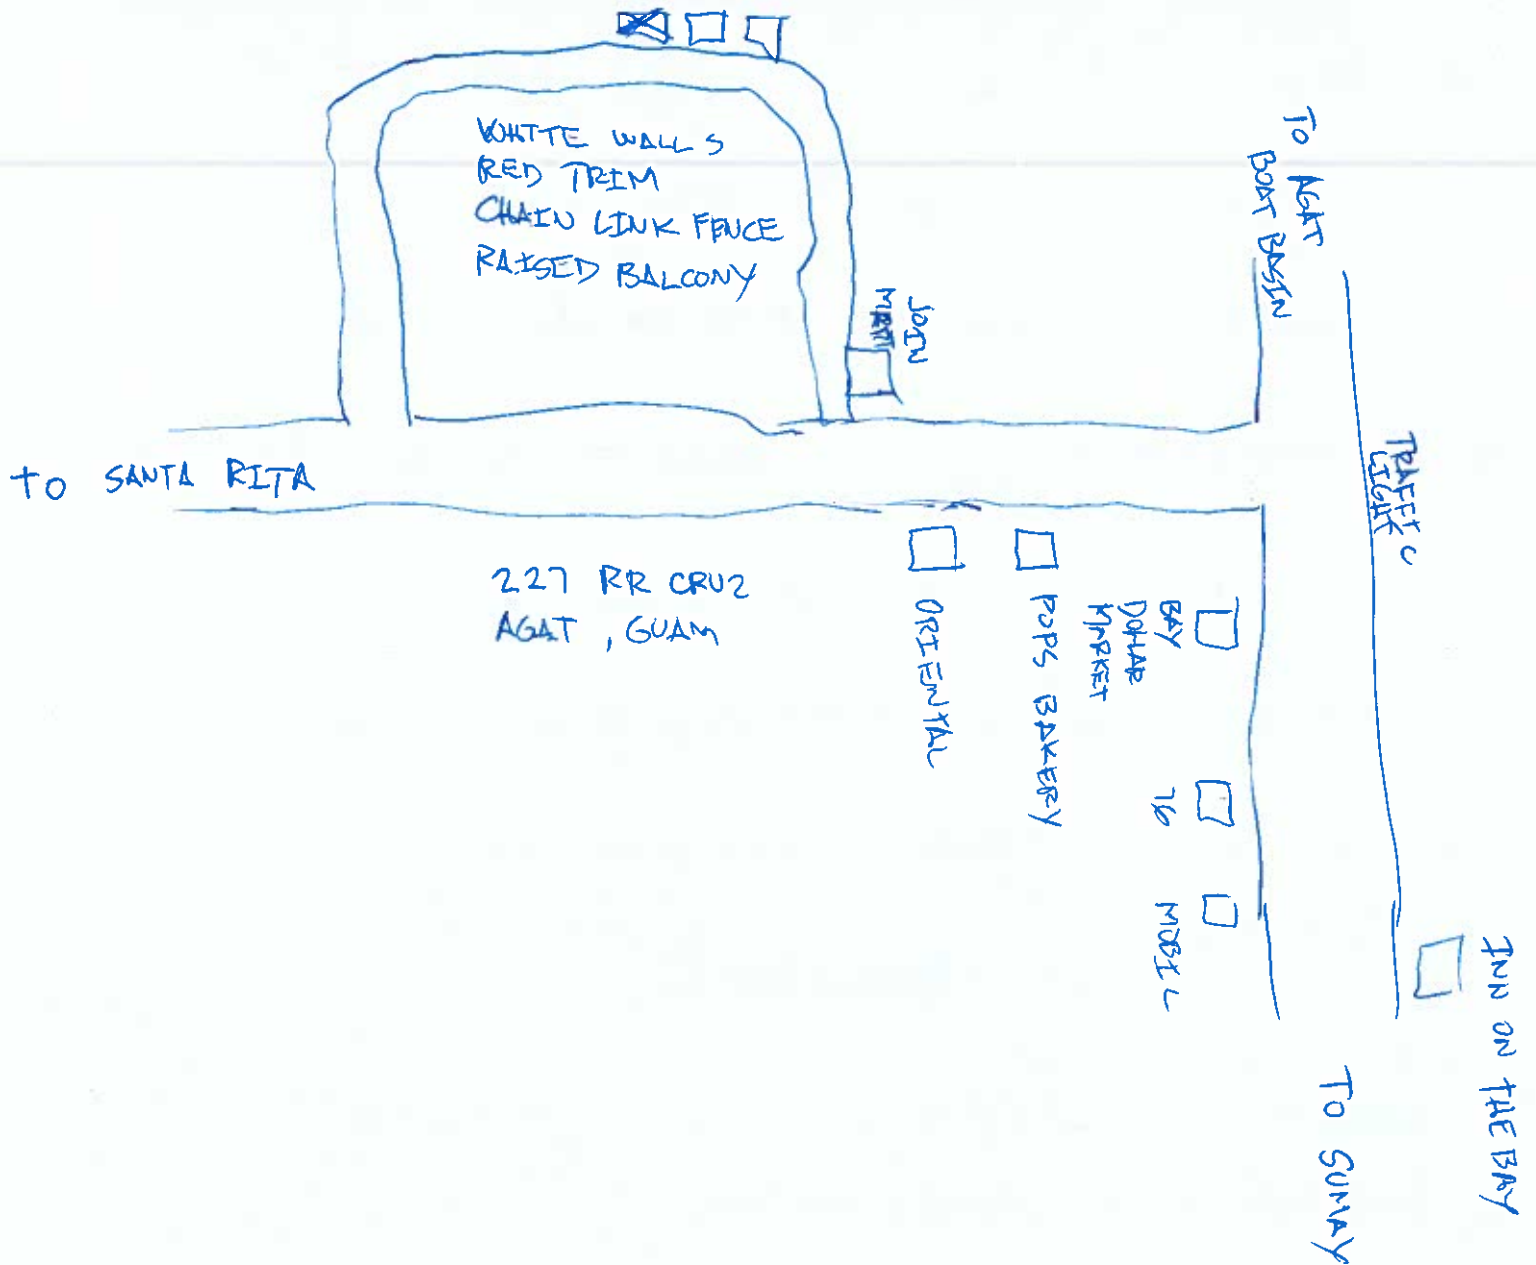 WHITE WALLS
RED TRIM
CHAIN LINK FENCE
RAISED BALCONY
TO AGAT
BOAT BASIN
JOIN
MART
TRAFFIC
LIGHT
TO SANTA RITA
227 RR CRUZ
AGAT, GUAM
ORIENTAL
POPS BAKERY
BAY
DOLLAR
MARKET
76
MOBIL
INN ON THE BAY
TO SUMAY